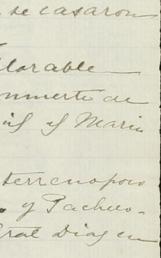 se casaron
lorable
muerto de
y Maria
terreno poco
y Pacheco
eral Diaz en